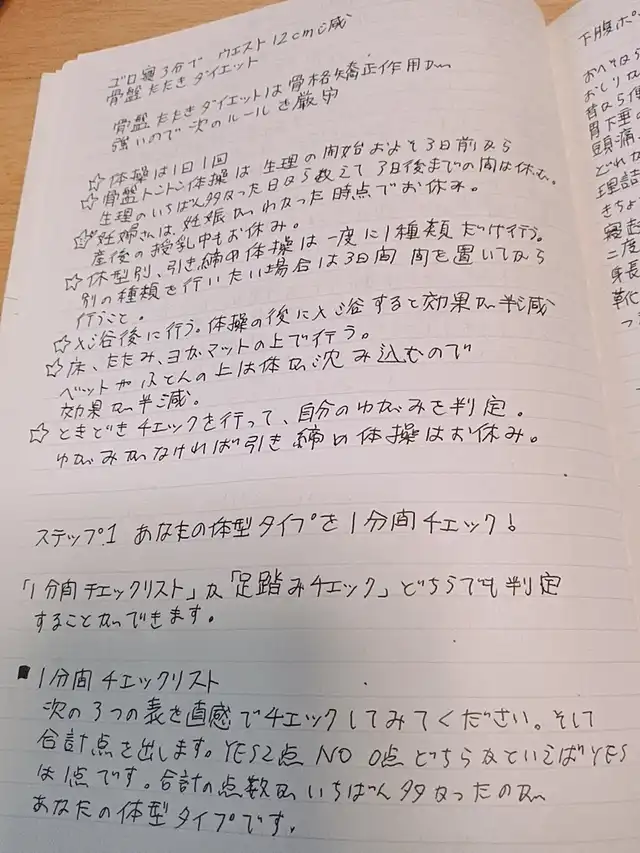 ゴロ寝3分で ウエスト12cm減
骨盤たたきダイエット
骨盤たたきダイエットは骨格矯正作用が
強いので次のルールを厳守
☆体操は1日1回
☆骨盤トントン体操は 生理の開始およそ3日前なら
生理のいちばん多かった日なら数えて3日後までの間は休む。
☆妊婦さんは、妊娠がわかった時点でお休み。
産後の授乳中もお休み。
☆体型別、引き締め体操は一度に1種類だけ行う。
別の種類を行いたい場合は3日間 間を置いてなら
行うこと。
☆入浴後に行う。体操の後に入浴すると効果が半減
☆床、たたみ、ヨガマットの上で行う。
ベットやふとんの上は体が沈み込むので
効果が半減。
☆ときどきチェックを行って、自分のゆがみを判定。
ゆがみがなければ引き締め体操はお休み。
ステップ1 あなたの体型タイプを1分間チェック!
「1分間チェックリスト」か「足踏みチェック」どちらでも判定
することができます。
■1分間チェックリスト
次の3つの表を直感でチェックしてみてください。そして
合計点を出します。YES2点 NO 0点 どちらかといえばYES
は1点です。合計の点数がいちばん多かったのが
あなたの体型タイプです。
下腹ポ
おへそなら
おしりな
昔なら便
胃下垂の
頭痛、
どれか
理詰
きちょ
寝起
二度
身長
靴